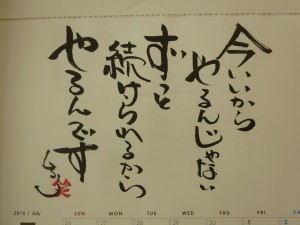 今いいから
やるんじゃない
ずっと
続けられるから
やるんです
笑
2016 / July
SUN MON TUE WED THU FRI SA
26 27 28 29 30 1 2